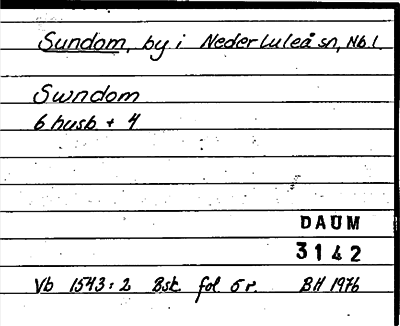 Sundom, by i Nederluleå sn, Nb l.
Swndom
6 husb + 4
DAUM
3142
Vb 1543:2 Bsk. fol 5 r. BH 1976